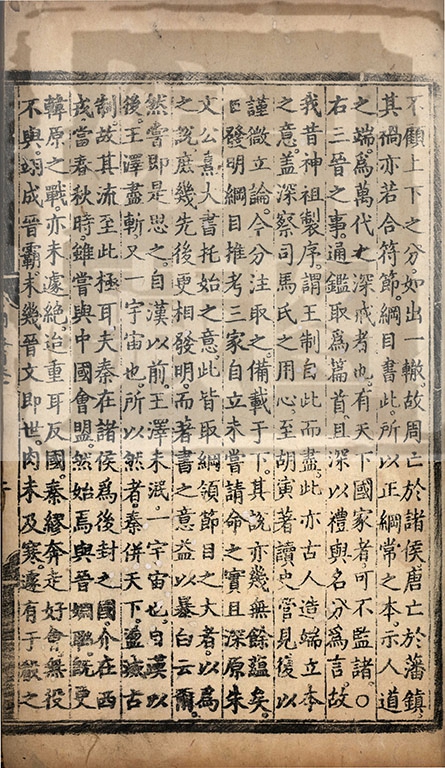 不顧上下之分如出一轍故周亡於諸侯唐亡於藩鎮
其禍亦若合符節綱目書此所以正綱常之本示人道
之端為萬代之深戒者也有天下國家者可不監諸○
右三晉之事通鑑取為篇首且深以禮與名分為言故
我昔神祖製序謂王制自此而盡此亦古人造端立本
之意盖深察司馬氏之用心至胡寅著讀史管見復以
謹微立論今分注取之備載于下其說亦幾無餘蘊矣
臣發明綱目推考三家自立未嘗請命之實且深原朱
文公熹大書托始之意此皆取綱領節目之大者以為
之說庶幾先後更相發明而著書之意益以暴白云爾
然嘗即是思之自漢以前王澤未泯一宇宙也自漢以
後王澤盡斬又一宇宙也所以然者秦併天下盪滅古
制故其流至此極耳夫秦在諸侯為後封之國介在西
戎當春秋時雖嘗與中國會盟然始焉與晉姻聯旣更
韓原之戰亦未遽絶迨重耳反國秦繆奔走好會無役
不與翊成晉霸未幾晉文即世肉未及寒遽有于殽之